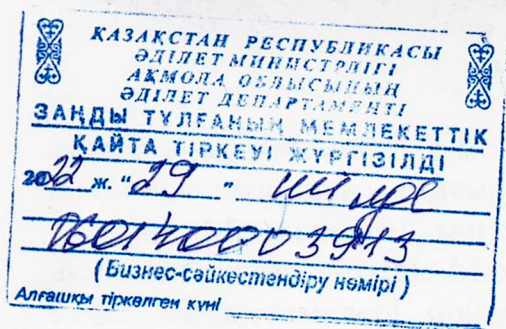 ҚАЗАҚСТАН РЕСПУБЛИКАСЫ
ӘДІЛЕТ МИНИСТРЛІГІ
АҚМОЛА ОБЛЫСЫНЫҢ
ӘДІЛЕТ ДЕПАРТАМЕНТІ
ЗАҢДЫ ТҰЛҒАНЫҢ МЕМЛЕКЕТТІК
ҚАЙТА ТІРКЕУІ ЖҮРГІЗІЛДІ
2022 ж. "29" шілде
060140003913
(Бизнес-сәйкестендіру нөмірі)
Алғашқы тіркелген күні